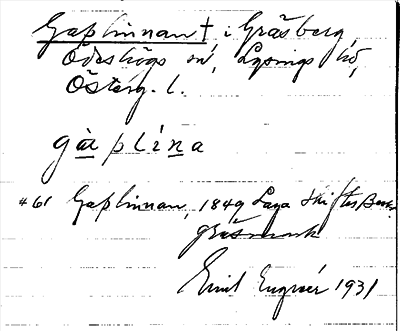 Gaplinnan† i Gråsberg,
Ödeshögs sn, Lysings hd,
Österg. l.
gàplìna
*61 Gaplinnan, 1849 Laga Skiftes Besk.
gräsmark
Emil Engveér 1931